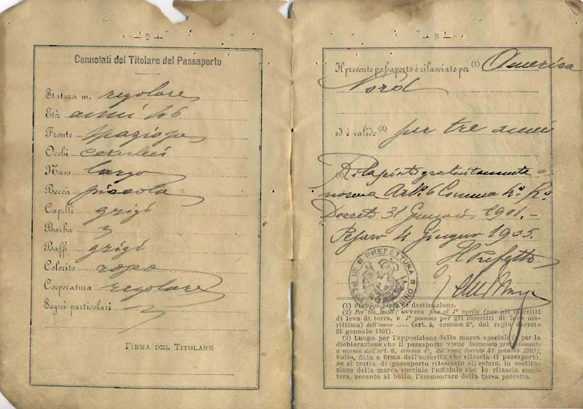 2
Connotati del Titolare del Passaporto
Statura m. regolare
Età anni 46
Fronte spaziosa
Occhi cerulei
Naso largo
Bocca piccola
Capelli grigi
Barba
Baffi grigi
Colorito roseo
Corporatura regolare
Segni particolari
FIRMA DEL TITOLARE
3
Il presente passaporto è rilasciato per (1) America
Nord
ed è valido (2) per tre anni
Rilasciato gratuitamente a
norma Art. 6 Comma 4° R.
Decreto 31 Gennaio 1901.-
Pesaro 4 Giugno 1905.
Il Prefetto
PREFETTURA
(1) Stato di destinazione.
(2) Per tre anni; ovvero fino al 1° aprile (per gli iscritti
di leva di terra, o 1° gennaio per gli iscritti di leva ma-
rittima) dell'anno .... (art. 5, comma 2°, del regio decreto
31 gennaio 1901).
(3) Luogo per l'apposizione della marca speciale o per la
dichiarazione che il passaporto viene rilasciato gratuitamente
a norma dell'art. 6, comma 4°, del regio decreto 31 gennaio 1901;
bollo, data e firma dell'autorità che rilascia il passaporto.
Se si tratta di passaporto rilasciato all'estero, in sostitu-
zione della marca speciale l'ufficiale che lo rilascia annote-
rà, accanto al bollo, l'ammontare della tassa percetta.